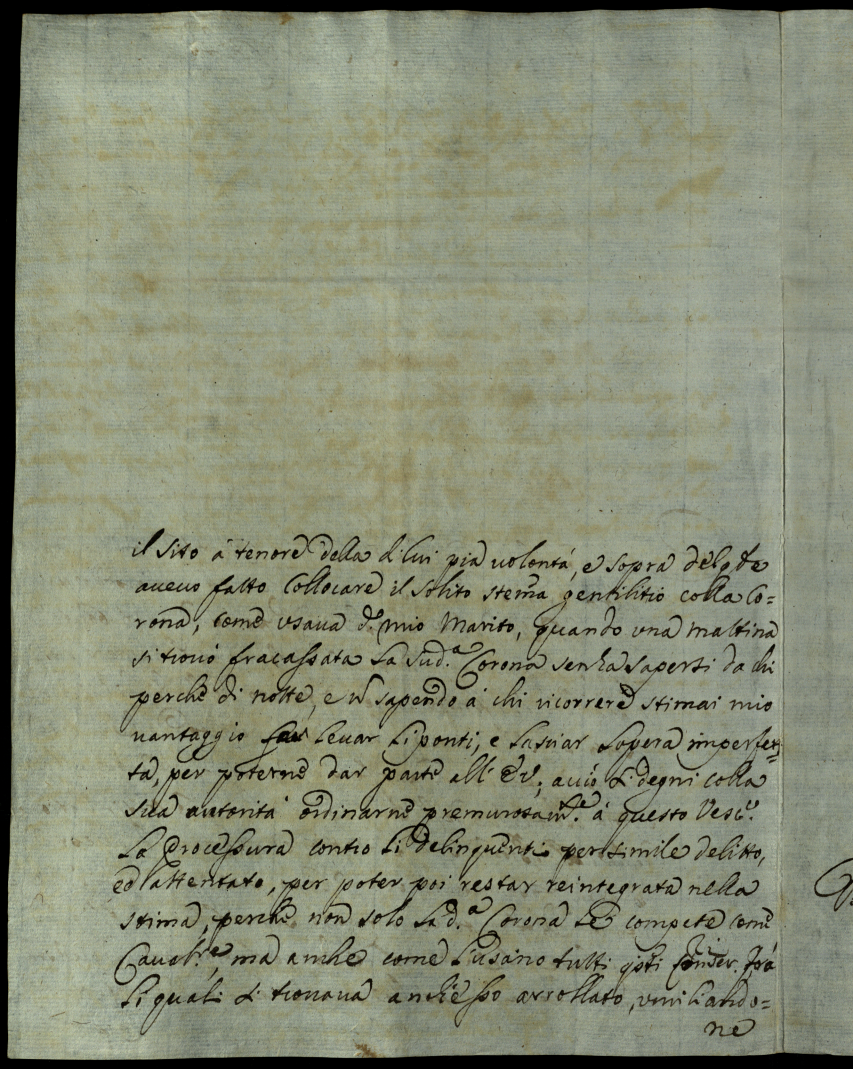 il sito à tenore della di lui pia volontà, e sopra del qle
avevo fatto collocare il solito stema gentilitio colla Co=
rona, come usava d.º mio Marito, quando una mattina
si trovò fracassata la sud.ª Corona senza sapersi da chi
perche di notte, e ñ sapendo à chi ricorrere stimai mio
vantaggio far levar li ponti, e lasciar l'opera imperfet=
ta, per poterne dar parte all' E.V., acciò si degni colla
sua autorità ordinarne premurosam.te à questo Vesc.º
la Processura contro li delinquenti per simile delitto,
ed attentato, per poter poi restar reintegrata nella
stima, perche non solo la d.ª Corona le compete come
Caval.re ma anche come l'usano tutti qsti frà
li quali si trovava anch'esso arrollato, umiliando=
ne